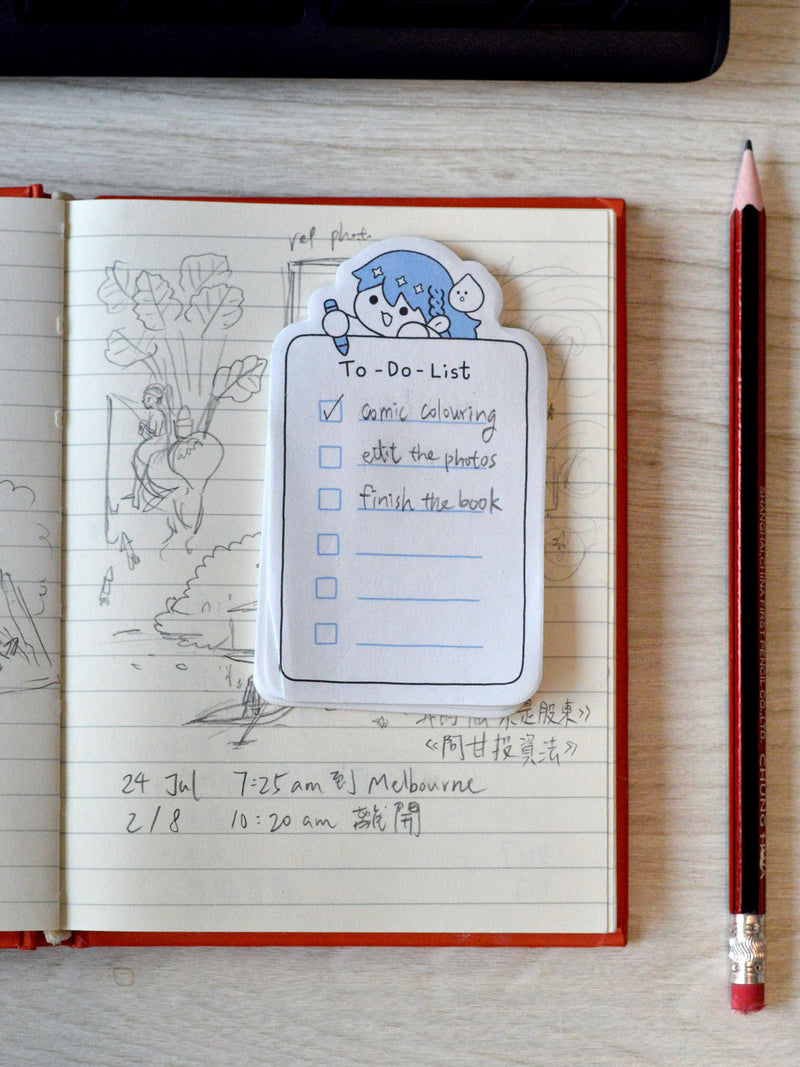 To-Do-List
comic colouring
edit the photos
finish the book
是股東》
《阿甘投資法》
24 Jul 7:25 am 到 Melbourne
2/8 10:20 am 離開
CHINA FIRST PENCIL CO.,LTD.